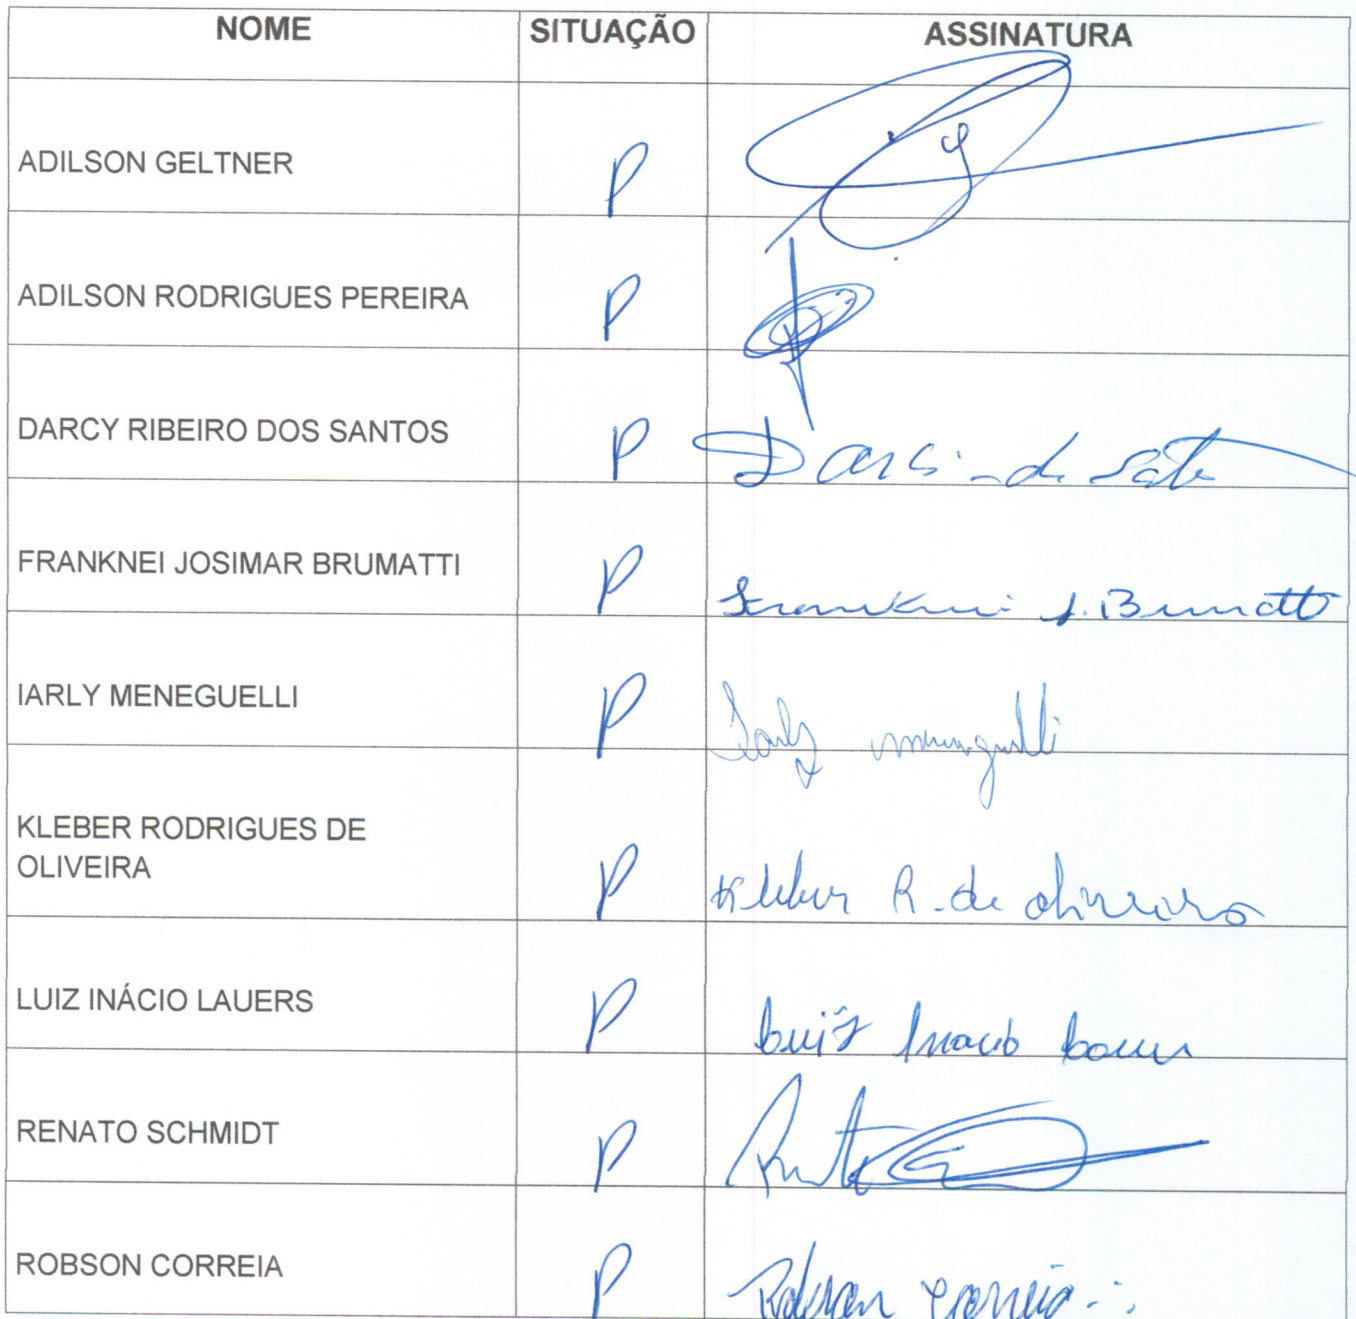 NOME SITUAÇÃO ASSINATURA
ADILSON GELTNER P
ADILSON RODRIGUES PEREIRA P
DARCY RIBEIRO DOS SANTOS P
FRANKNEI JOSIMAR BRUMATTI P Franknei J. Brumatti
IARLY MENEGUELLI P Iarly meneguelli
KLEBER RODRIGUES DE
OLIVEIRA P Kleber R. de oliveira
LUIZ INÁCIO LAUERS P Luiz Inacio Lauers
RENATO SCHMIDT P
ROBSON CORREIA P Robson Correia